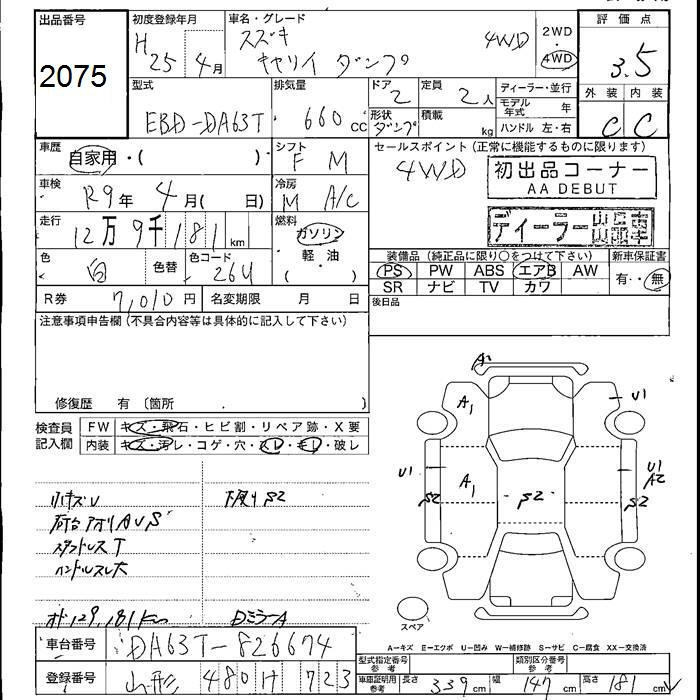 出品番号
2075
初度登録年月
H 25年 4月
車名・グレード
スズキ
キャリイ ダンプ
4WD
2WD
4WD
評価点
3.5
外装 内装
C C
型式
EBD-DA63T
排気量
660 cc
ドア
2
定員
2人
形状
ダンプ
積載
kg
ディーラー・並行
モデル年式 年
ハンドル 左・右
車歴
自家用・( )・
シフト
F M
車検
R9年 4月( 日)
冷房
M A/C
走行
12万 9千 181 km
燃料
ガソリン
・
軽・油
色
白
色替
色コード
26U
R券 7,010円
名変期限 月 日
セールスポイント(正常に機能するものに限ります)
4WD
初出品コーナー
AA DEBUT
ディーラー
装備品(純正品に限り○をつけて下さい)
新車保証書
PS PW ABS エアB AW
SR ナビ TV カワ
有・・無
後日品
注意事項申告欄(不具合内容等は具体的に記入して下さい)
修復歴 有 〔箇所 〕
検査員
記入欄
FW キズ・飛石・ヒビ割・リペア跡・X要
内装 キズ・汚レ・コゲ・穴・スレ・キレ・破レ
小キズU
荷台アオリAUS
スタッドレスT
ハンドルスレ大
オド129,181km
下廻りS2
DミラーA
A1
A1
U1
U1
S2
A1
S2
U1
A2
S2
スペア
車台番号
DA63T-826674
登録番号
山形 480 け 723
A-キズ E-エクボ U-凹み W-補修跡 S-サビ C-腐食 XX-交換済
型式指定番号
参考
類別区分番号
参考
車庫証明用
参考
長さ 339cm
幅 147cm
高さ 181cm